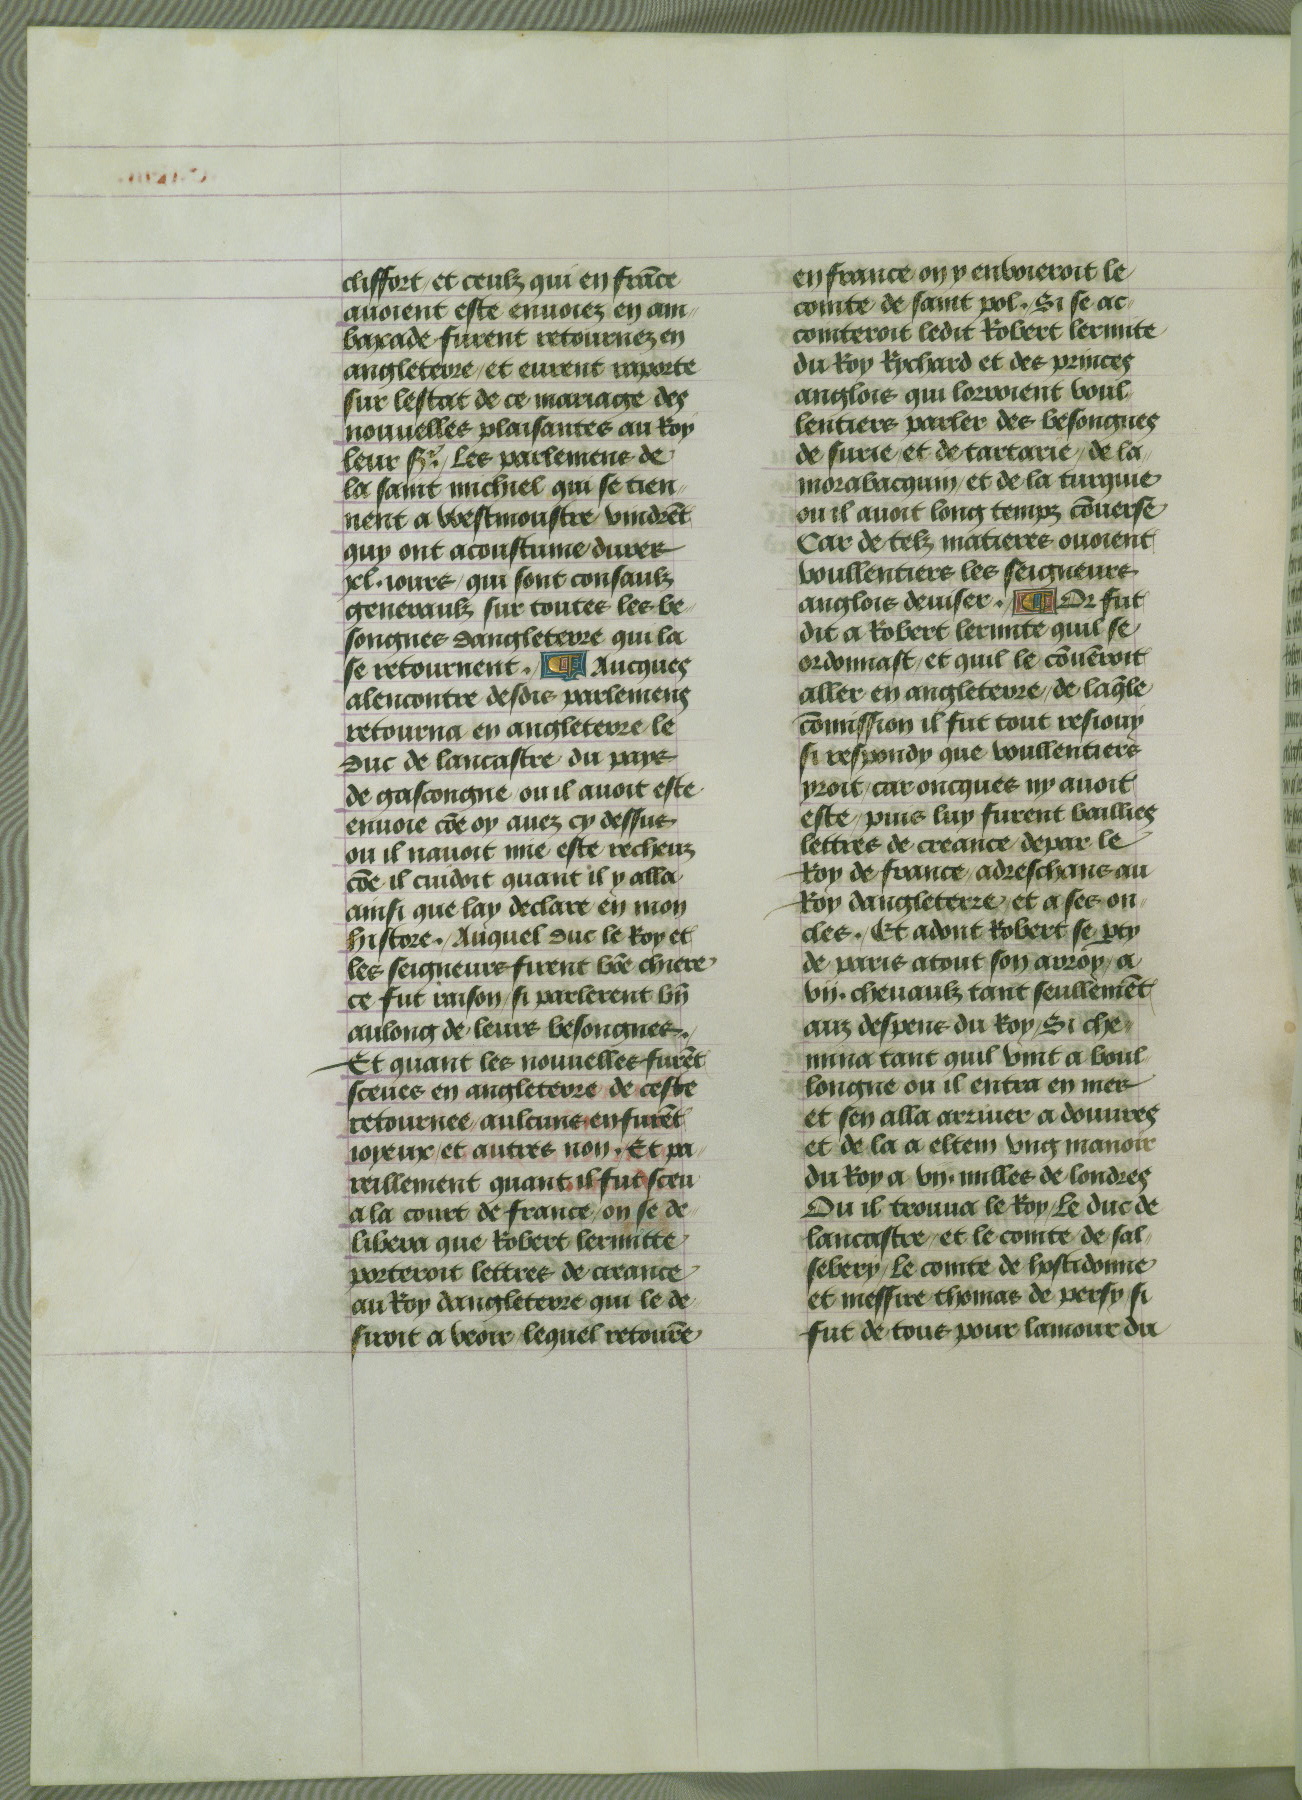 cliffort / et ceulz qui en frāce
auoient este enuoiez en am„
baxade furent retournez en
angleterre / et eurent raporte
sur lestat de ce mariage des
nouuelles plaisantes au Roy
leur sʳ. / Les parlemens de
la saint michiel qui se tien„
nent a westmoustre vindrēt
quy ont acoustume durer
xl. iours / qui sont consaulz
generaulz sur toutes les be„
songnes dangleterre qui la
se retournent. / Aucques
alencontre desdis parlemens
retourna en angleterre le
duc de lancastre du pays
de gascongne ou il auoit este
enuoie cōe oy auez cy dessus
ou il nauoit mie este recheuz
cōe il cuidoit quant il y alla
ainsi que lay declare en mon
histore. / Auquel duc le Roy et
les seigneurs firent bōe chiere
ce fut raison / si parlerent bn̄
aulong de leurs besongnes.
Et quant les nouuelles furēt
sceues en angleterre de ceste
retournee / aulcuns en furēt
ioyeux / et autres non. Et pa„
reillement quant il fut sceu
a la court de france / on se de„
libera que Robert lermitte
porteroit lettres de creance
au Roy dangleterre qui le de„
siroit a veoir / lequel retourē
en france on y envoieroit le
comte de saint pol. Si se ac„
comteroit ledit Robert lermite
du Roy Rychard et des princes
anglois qui lorroient voul„
lentiers parler des besongnes
de surie / et de tartarie / de la„
morabacquin / et de la turquie
ou il auoit long temps cōuerse
Car de telz matieres ouoient
voullentiers les seigneurs
anglois deuiser. / Or fut
dit a Robert lermite quil se
ordonnast / et quil le cōuēroit
aller en angleterre / de laq̄le
cōmission il fut tout resiouy
si respondy que voullentiers
yroit / car oncques ny auoit
este / puis luy furent baillies
lettres de creance depar le
Roy de france / adreschans au
Roy dangleterre / et a ses on„
cles. / Et adont Robert se pty
de paris atout son arroy / a
vij. cheuaulz tant seullemēt
aux despens du Roy / Si che„
mina tant quil vint a boul„
longne ou il entra en mer
et sen alla arriuer a douures
et de la a eltem vng manoir
du Roy a vij. milles de londres
Ou il trouua le Roy / Le duc de
lancastre / et le comte de sal„
sebery / Le comte de hostidonne
et messire thomas de persy si
fut de tous pour lamour du